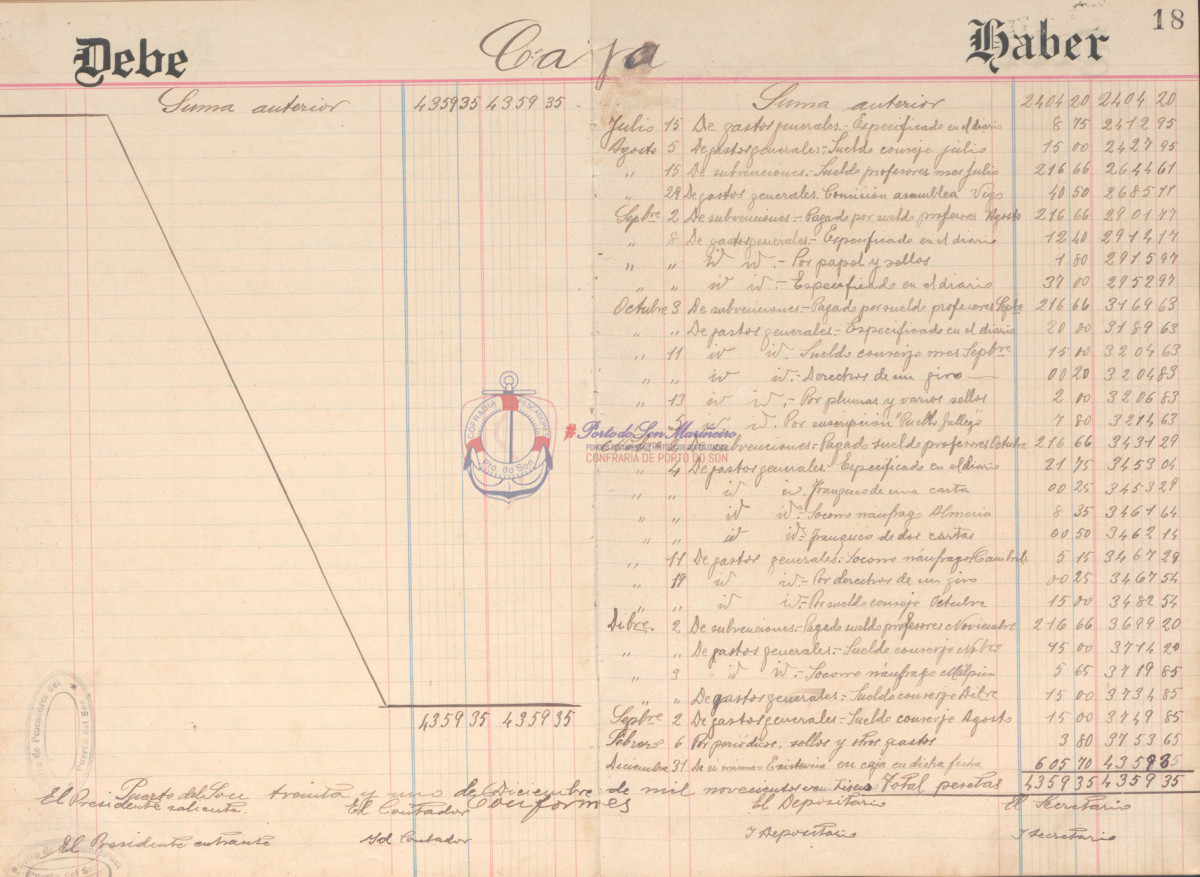 18
Debe Caja Haber
Suma anterior 4359 35 4359 35
Suma anterior 2404 20 2404 20
Julio 15 De gastos generales.- Especificado en el diario 8 75 2412 95
Agosto 5 De gastos generales.- Sueldo conserje julio 15 00 2427 95
" 15 De subvenciones.- Sueldo profesores mes Julio 216 66 2644 61
" 29 De gastos generales. Comision asamblea Vigo 40 50 2685 11
Sepbre 2 De subvenciones.- Pagado por sueldo profesores Agosto 216 66 2901 77
" 8 De gastos generales.- Especificado en el diario 12 40 2914 17
" " id id.- Por papel y sellos 1 80 2915 97
" " id id.- Especificado en el diario 37 00 2952 97
Octubre 3 De subvenciones- Pagado por sueldo profesores Sepbre 216 66 3169 63
" " De gastos generales.- Especificado en el diario 20 00 3189 63
" 11 id id. Sueldo conserje mes Sepbre 15 00 3204 63
" " id id.- Derechos de un giro 00 20 3204 83
" 13 id id.- Por plumas y varios sellos 2 00 3206 83
5 id. Por suscripcion "Pueblo Gallego" 7 80 3214 63
subvenciones.- Pagado sueldo profesores Octubre 216 66 3431 29
" 4 De gastos generales.- Especificado en el diario 21 75 3453 04
" " id id. Franqueo de una carta 00 25 3453 29
" " id id.- Socorro náufrago Almeria 8 35 3461 64
" " id id.- Franqueo de dos cartas 00 50 3462 14
" 11 De gastos generales.- Socorro náufrago 5 15 3467 29
" 19 id id.- Por derechos de un giro 00 25 3467 54
" " id id.- Por sueldo conseje Octubre 15 00 3482 54
Dibre. 2 De subvenciones.- Pagado sueldo profesores Noviembre 216 66 3699 20
" " De gastos generales.- Sueldo conserje Nobre 15 00 3714 20
" 3 id id.- Socorro náufrago Malpica 5 65 3719 85
" " De gastos generales.- Sueldo conserje Dibre 15 00 3734 85
Sepbre 2 De gastos generales.- Sueldo conserje Agosto 15 00 3749 85
Febrero 6 Por periódicos, sellos y otros gastos 3 80 3753 65
Diciembre 31 De si misma- Existencia en caja en dicha fecha 605 70 4359 35
4359 35 4359 35
Total pesetas 4359 35 4359 35
Puerto del Son treinta y uno de Diciembre de mil novecientos
Conformes
El Presidente saliente. El Contador El Depositario El Secretario
El Presidente entrante Id Contador I Depositario I Secretario
COFRADIA PESCADORES
Pto. do Son
#PortodoSonMarineiro
CONFRARIA DE PORTO DO SON